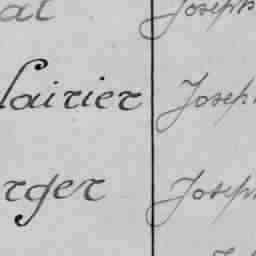 al Joseph
lairier Joseph
rger Joseph